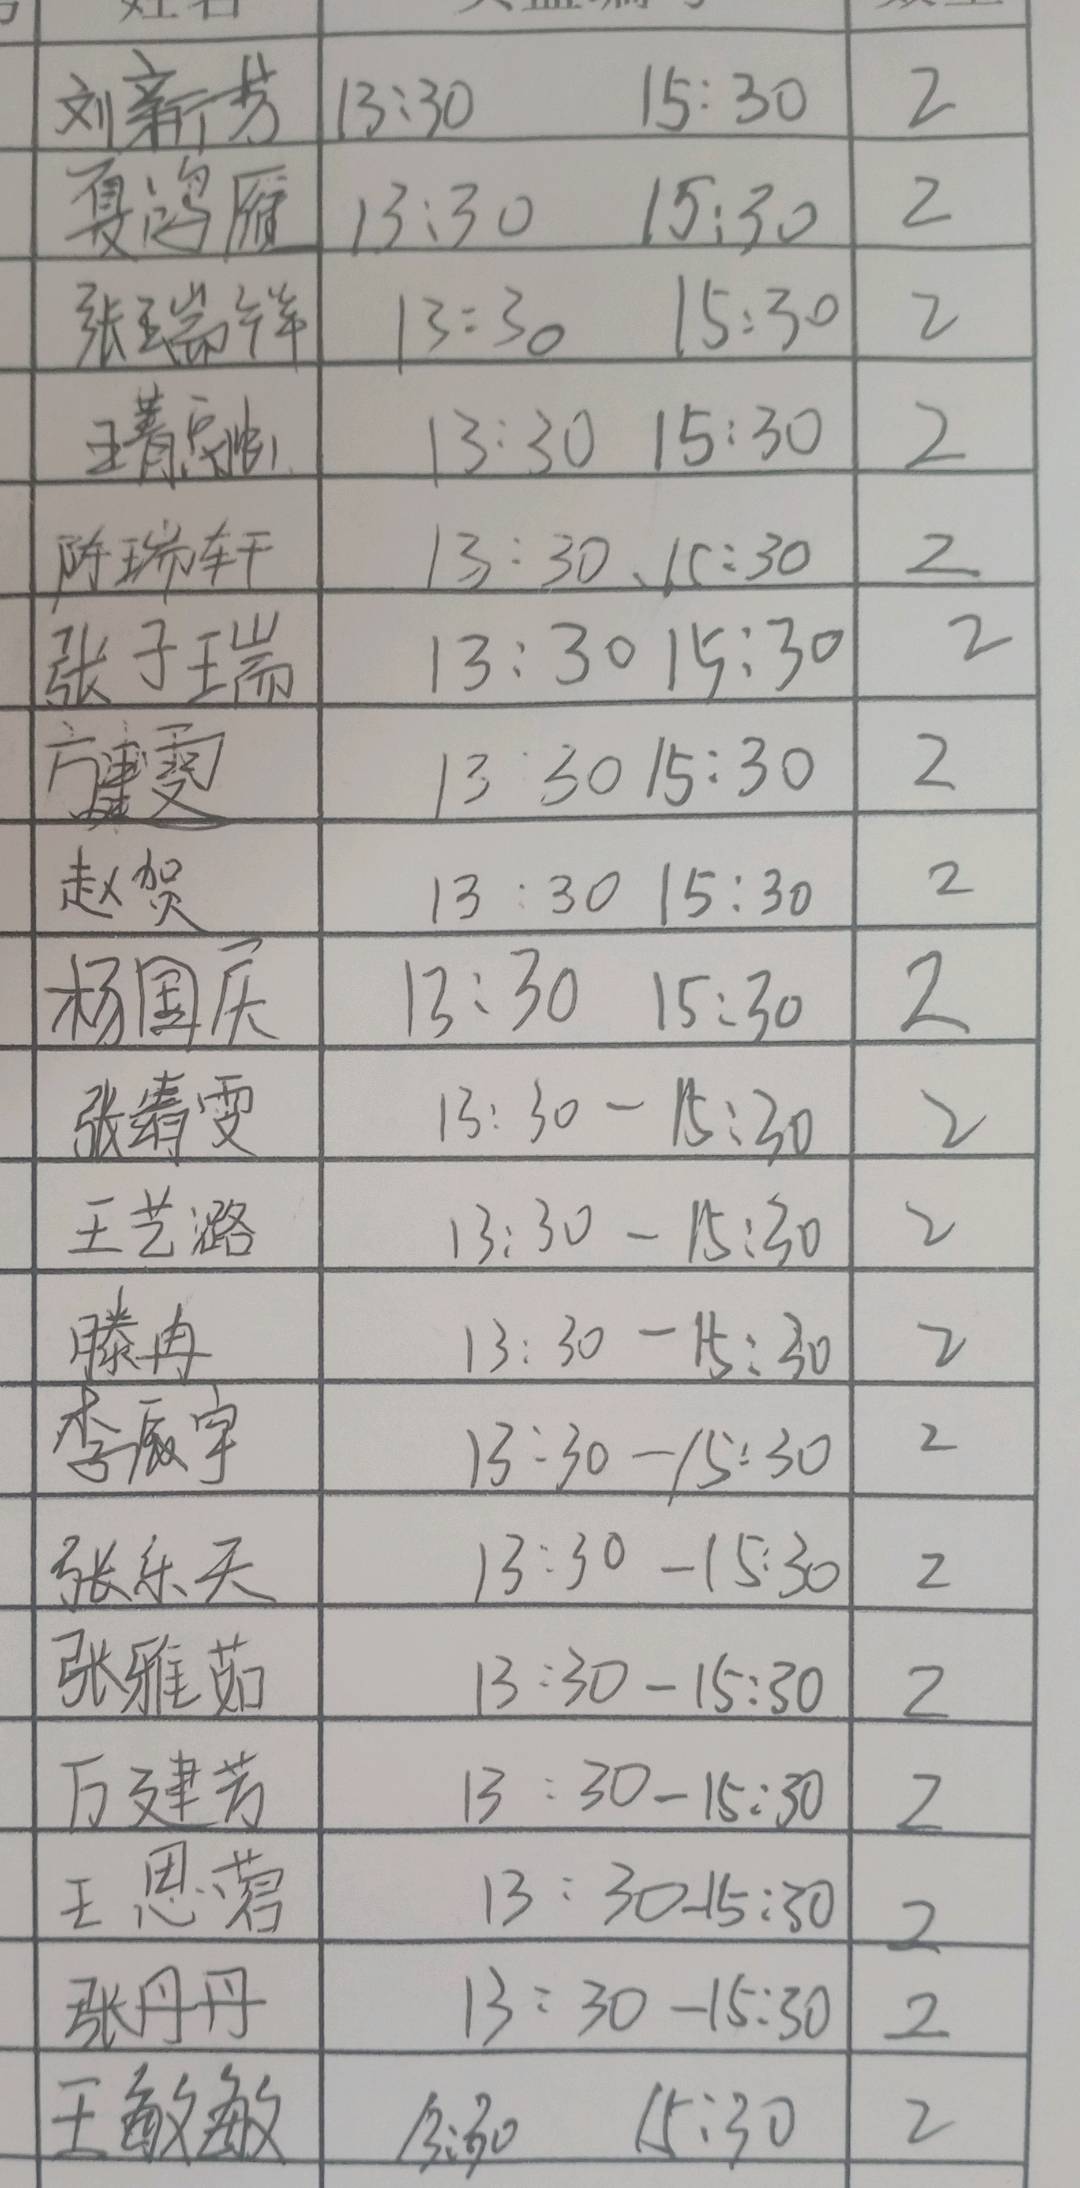 姓名
刘新芳 13:30 15:30 2
夏鸿雁 13:30 15:30 2
张瑞祥 13:30 15:30 2
13:30 15:30 2
陈瑞轩 13:30、15:30 2
张子瑞 13:30 15:30 2
13:30 15:30 2
赵贺 13:30 15:30 2
杨国庆 13:30 15:30 2
张靖雯 13:30-15:30 2
王艺潞 13:30-15:30 2
滕冉 13:30-15:30 2
李宸宇 13:30-15:30 2
张乐天 13:30-15:30 2
张雅茹 13:30-15:30 2
万建芳 13:30-15:30 2
王思蓉 13:30-15:30 2
张丹丹 13:30-15:30 2
王敏敏 13:30 15:30 2